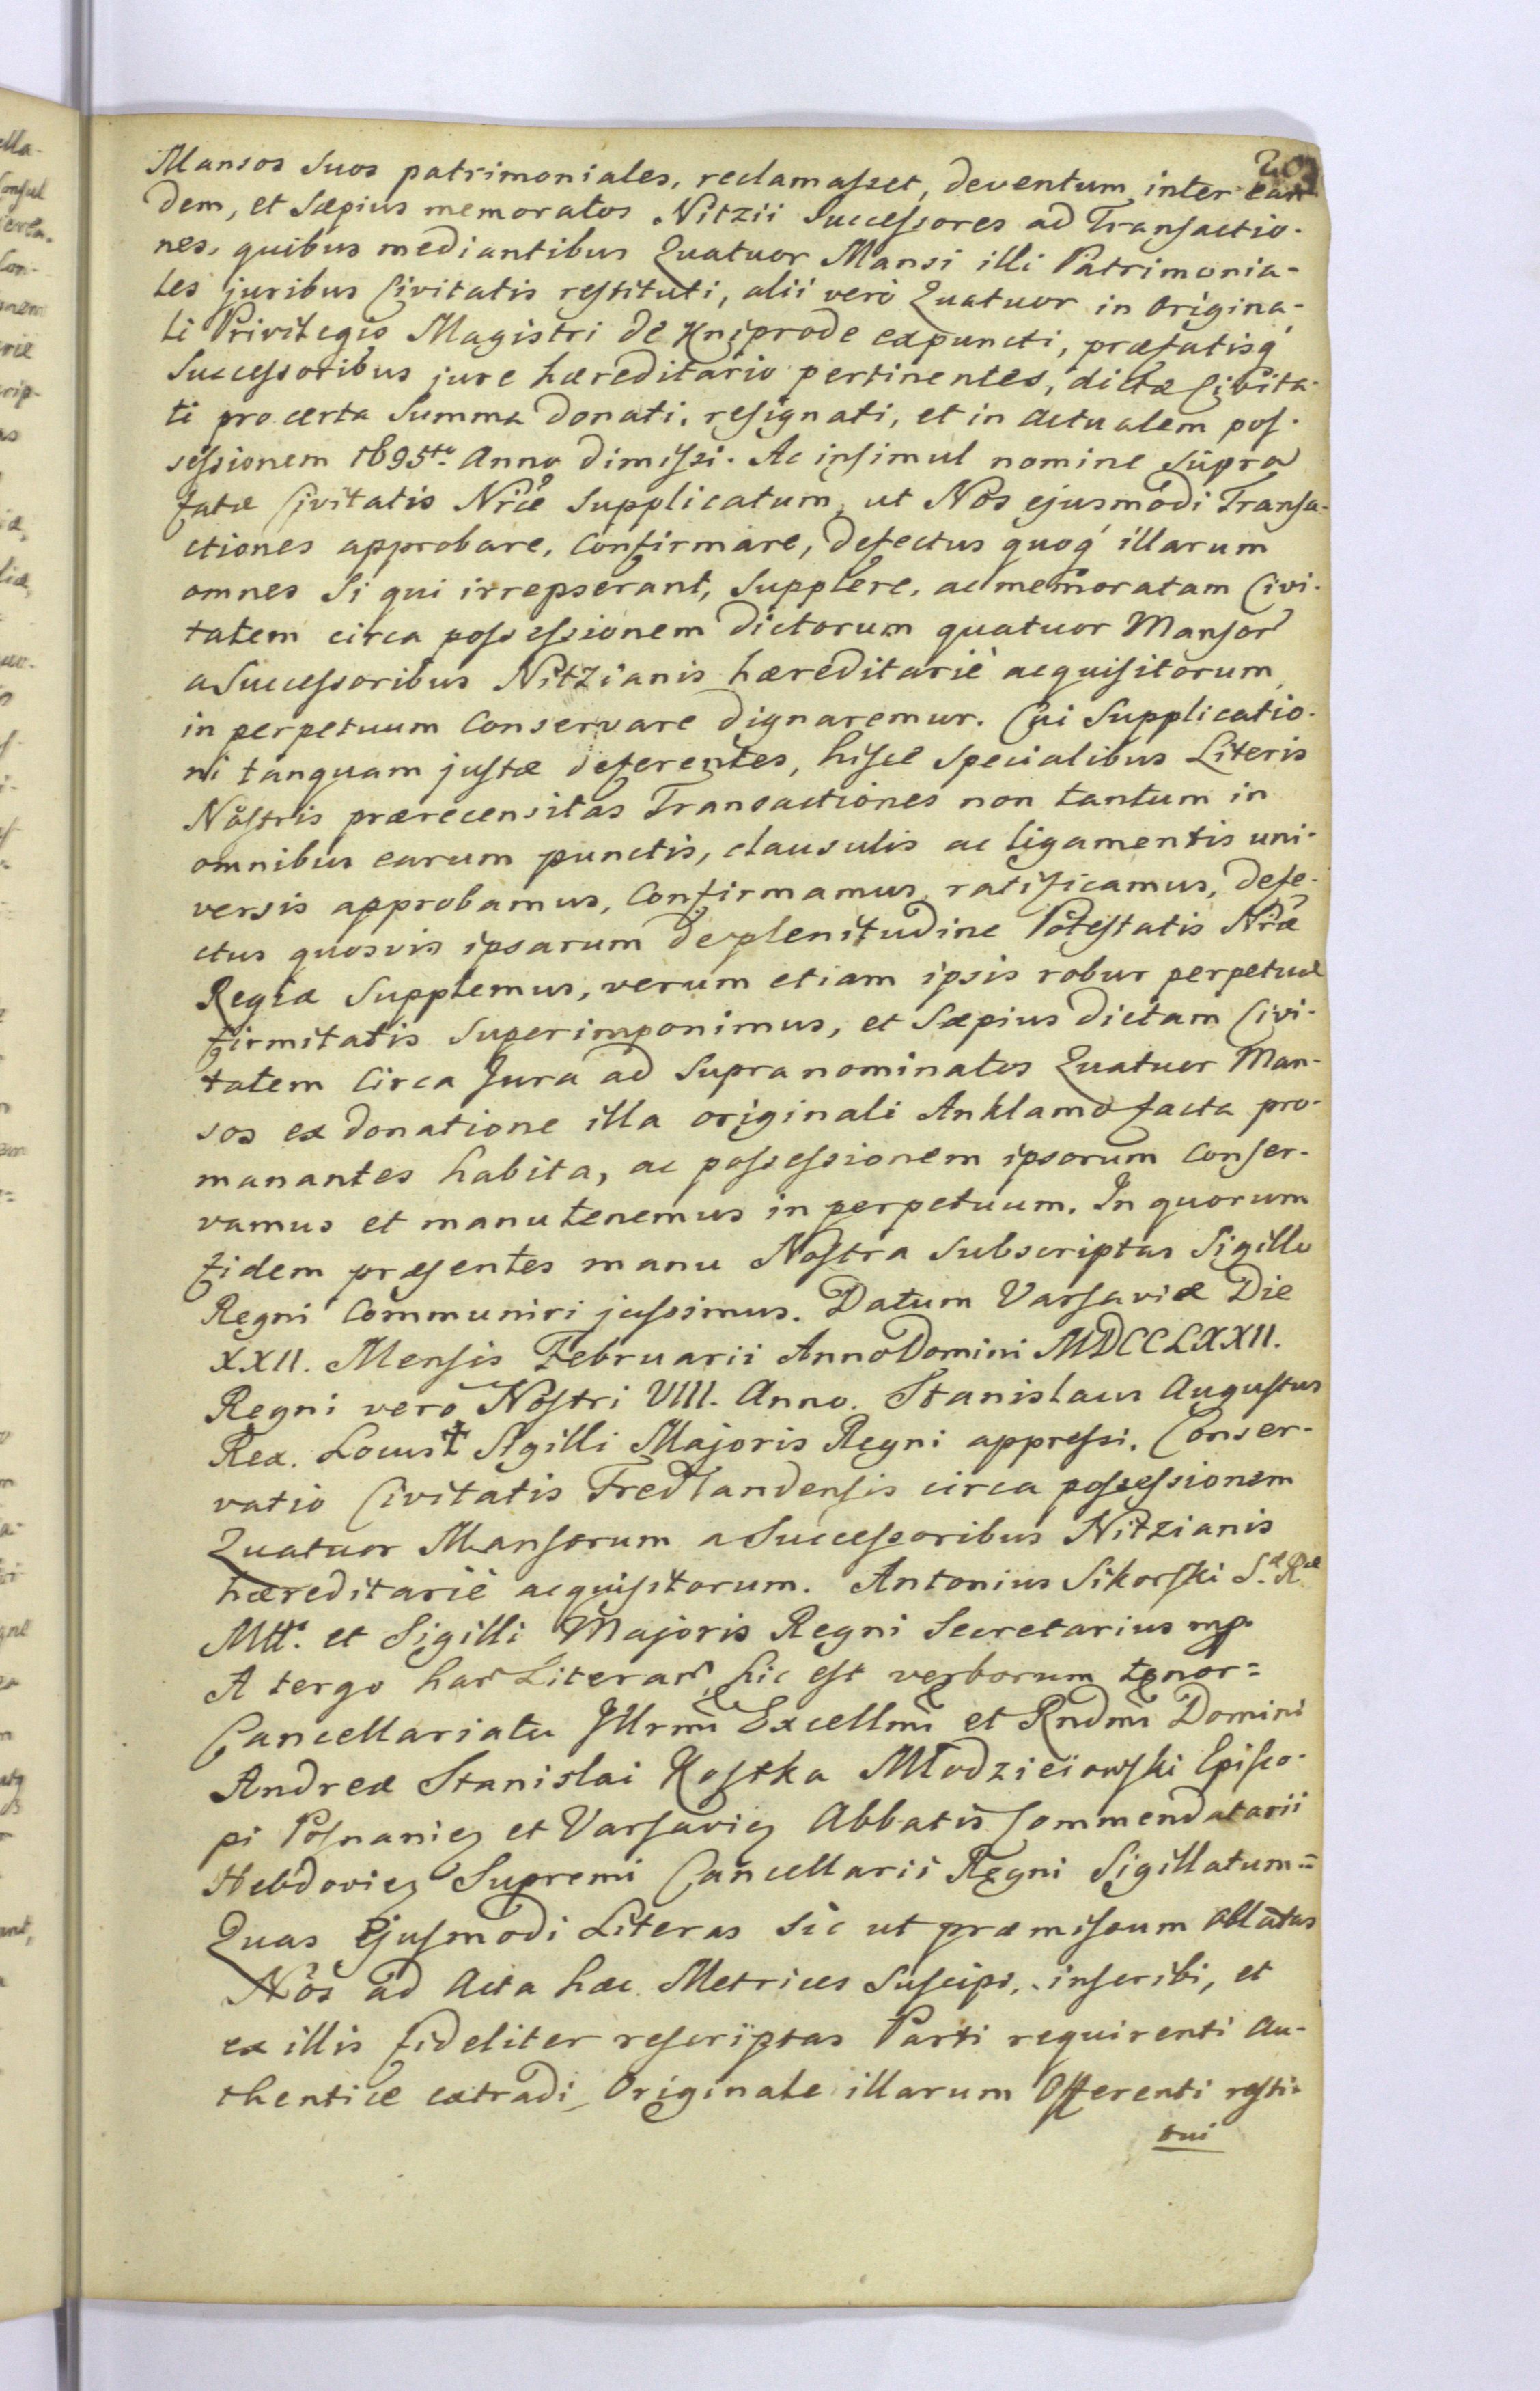 203
Mansos Suos patrimoniales, reclamasset, deventum inter ean-
dem, et Sæpius memoratos Nitzii Successores ad Transactio-
nes, quibus mediantibus Quatuor Mansi illi Patrimonia-
les juribus Civitatis restituti, alii verò Quatuor in Origina-
li Privilegio Magistri de Kniprode expuncti, præfatisq́
Successoribus jure hæreditario pertinentes, dictæ Civita-
ti pro certa Summa donati, resignati, et in actualem pos-
sessionem 1695to Anno dimissi. Ac insimul nomine Supra
fatæ Civitatis Nr̃æ Supplicatum, ut Nos ejusmodi Transa-
ctiones approbare, Confirmare, defectus quoq́ illarum
omnes Si qui irrepserant, Supplere, ac memoratam Civi-
tatem circa possessionem dictorum quatuor Mansor̃
a Successoribus Nitzianis hæreditariè acquisitorum,
in perpetuum Conservare dignaremur. Cui Supplicatio-
ni tanquam justæ deferentes, hisce Specialibus Literis
Nostris prærecensitas Transactiones non tantum in
omnibus earum punctis, clausulis ac ligamentis uni-
versis approbamus, Confirmamus, ratificamus, defe-
ctus quosvis ipsarum de plenitudine Potestatis Nr̃æ
Regiæ Supplemus, verum etiam ipsis robur perpetuæ
firmitatis Superimponimus, et Sæpius dictam Civi-
tatem Circa Jura ad Supranominatos Quatuor Man-
sos ex donatione illa originali Anklamo facta pro-
manantes habita, ac possessionem ipsorum Conser-
vamus et manutenemus in perpetuum. In quorum
fidem præsentes manu Nostra Subscriptas Sigillo
Regni Communiri jussimus. Datum Varsaviæ Die
XXII. Mensis Februarii Anno Domini MDCCLXXII.
Regni verò Nostri VIII. Anno. Stanislaus Augustus
Rex. Locus ✝ Sigilli Majoris Regni appressi. Conser-
vatio Civitatis Fredlandensis circa possessionem
Quatuor Mansorum a Successoribus Nitzianis
hæreditariè acquisitorum. Antonius Sikorski S.æ R.æ
Mtt.s et Sigilli Majoris Regni Secretarius mp.
A tergo har̃ Literar̃, hic est verborum tenor=
Cancellariatu Illrmi Excellmi et Rndmi Domini
Andreæ Stanislai Kostka Młodzieiowski Episco-
pi Posnanien et Varsavien Abbatis Commendatarii
Hebdovien Supremi Cancellarii Regni Sigillatum=
Quas Ejusmodi Literas sic ut præmissum oblatas
Nos ad Acta hæc Metrices Suscipi, inscribi, et
ex illis fideliter rescriptas Parti requirenti au-
thentice extradi, Originale illarum Offerenti resti=
tui